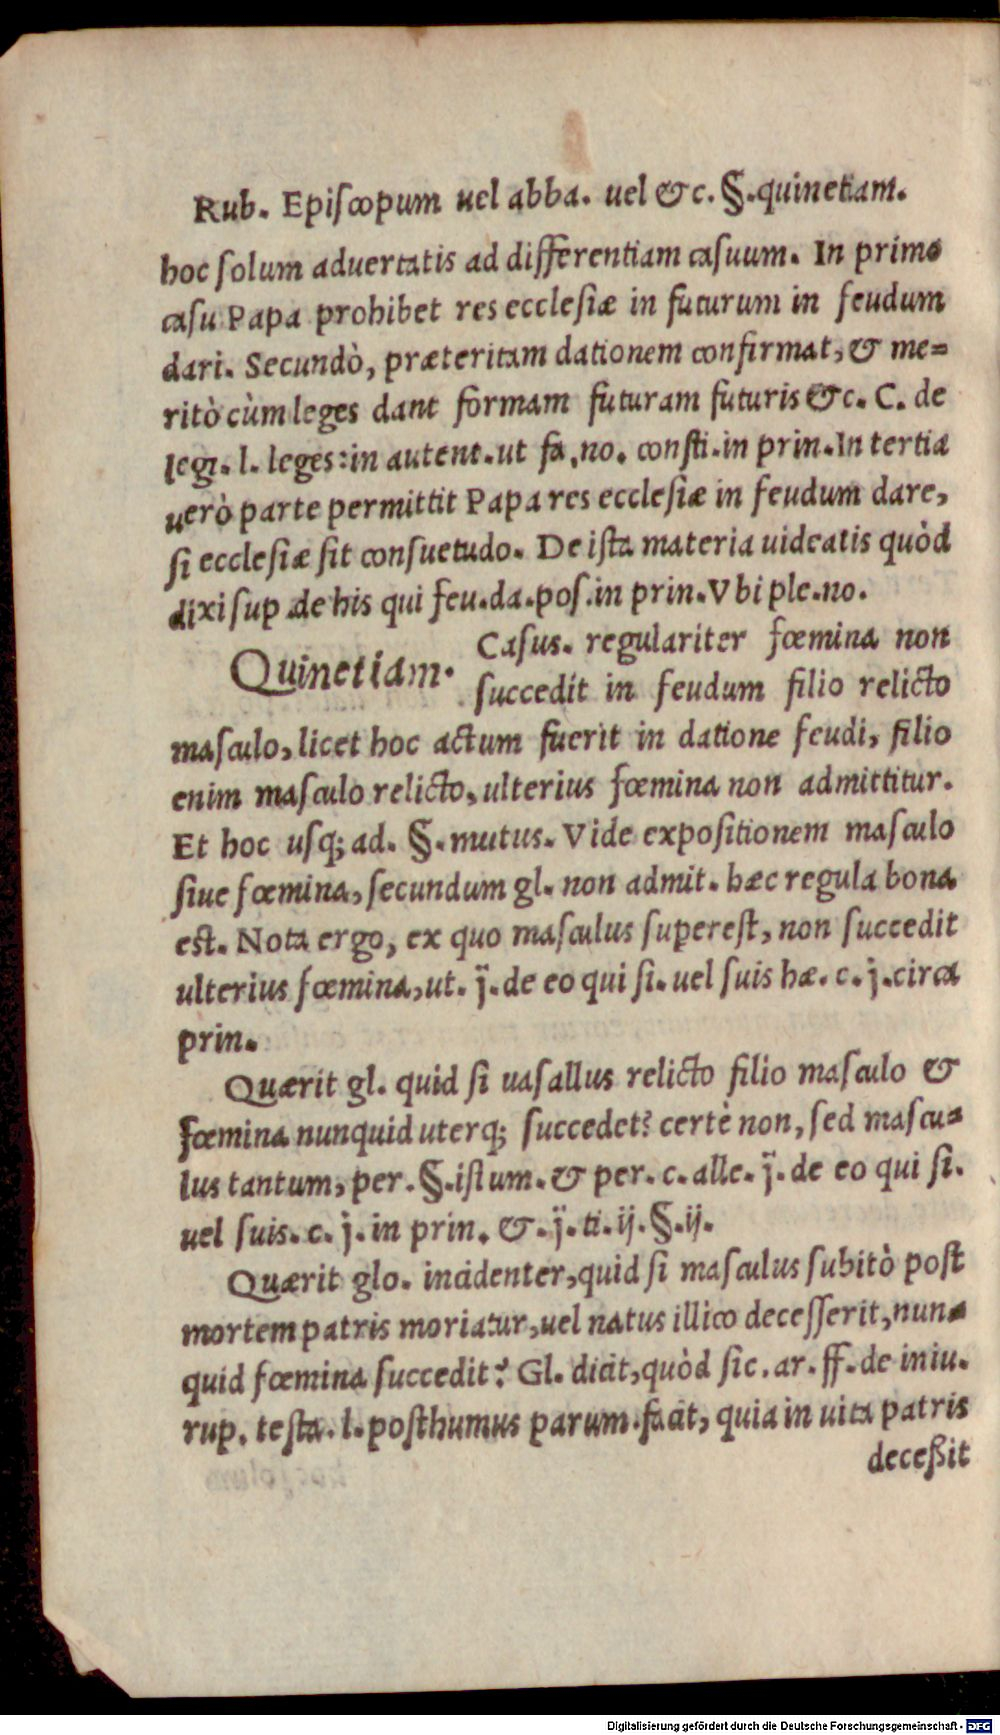 Rub. Epiſcopum uel abba. uel &c. §.quinetiam.
hoc ſolum aduertatis ad differentiam caſuum. In primo
caſu Papa prohibet res eccleſiæ in futurum in feudum
dari. Secundò, præteritam dationem confirmat, & me=
ritò cùm leges dant formam futuram futuris &c. C. de
legi. l. leges: in autent. ut fa. no. conſti. in prin. In tertia
uerò parte permittit Papa res eccleſiæ in feudum dare,
ſi eccleſiæ ſit conſuetudo. De iſta materia uideatis quòd
dixi ſup de his qui feu. da. poſ. in prin. Vbi ple. no.
Quinetiam. Caſus. regulariter fœmina non
ſuccedit in feudum filio relicto
maſculo, licet hoc actum fuerit in datione feudi, filio
enim maſculo relicto, ulterius fœmina non admittitur.
Et hoc uſq; ad. §. mutus. Vide expoſitionem maſculo
ſiue fœmina, ſecundum gl. non admit. hæc regula bona
est. Nota ergo, ex quo maſculus ſupereſt, non ſuccedit
ulterius fœmina, ut. j̈. de eo qui ſi. uel ſuis hæ. c. j. circa
prin.
Quærit gl. quid ſi uaſallus relicto filio maſculo &
fœmina nunquid uterq; ſuccedet? certè non, ſed maſcu=
lus tantum, per. §. iſtum. & per. c. alle. j̈. de eo qui ſi.
uel ſuis. c. j. in prin. &. j̈. ti. ij. §. ij.
Quærit glo. incidenter, quid ſi maſculus ſubitò poſt
mortem patris moriatur, uel natus illico deceſſerit, nun=
quid fœmina ſuccedit? Gl. dicit, quòd ſic. ar. ff. de iniu.
rup. teſta. l. poſthumus parum. facit, quia in uita patris
deceßit
Digitalisierung gefördert durch die Deutsche Forschungsgemeinschaft - DFG